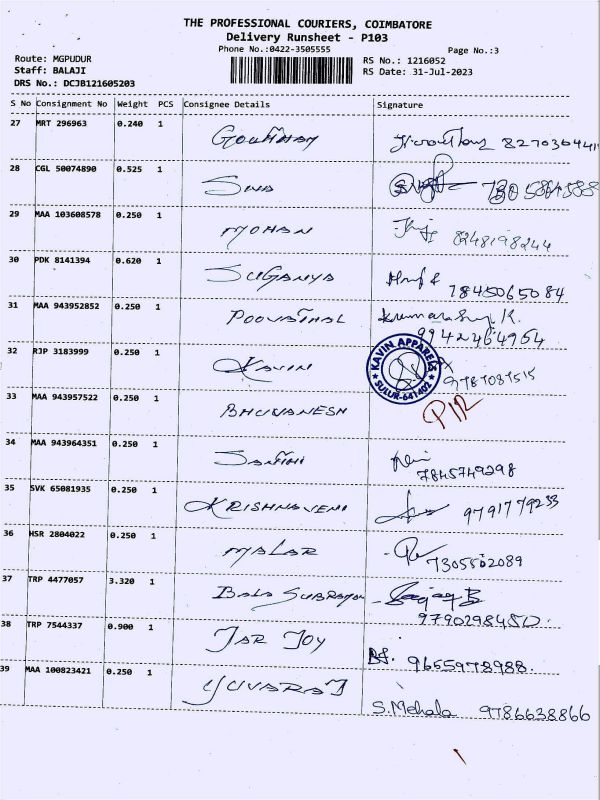 THE PROFESSIONAL COURIERS, COIMBATORE
Delivery Runsheet - P103
Phone No.:0422-3505555
Page No.:3
Route: MGPUDUR
RS No.: 1216052
Staff: BALAJI
RS Date: 31-Jul-2023
DRS No.: DCJB121605203
S No Consignment No Weight PCS Consignee Details Signature
27 MRT 296963 0.240 1 GOUTHAM
28 CGL 50074890 0.525 1 SIVA
29 MAA 103608578 0.250 1 MOHAN 8248198244
30 PDK 8141394 0.620 1 SUGANYA 7845065084
31 MAA 943952852 0.250 1 POOVATHAL K. 9942464964
32 RJP 3183999 0.250 1 KAVIN 9787087515
KAVIN APPARELS
SULUR-641402
33 MAA 943957522 0.250 1 BHUVANESH
34 MAA 943964351 0.250 1 7845749298
35 SVK 65081935 0.250 1 KRISHNAVENI 9791779233
36 HSR 2804022 0.250 1 MALAR 7305502089
37 TRP 4477057 3.320 1 BALA Sanjay B
9790298450.
38 TRP 7544337 0.900 1 JAR JOY 9655978988.
39 MAA 100823421 0.250 1 YUVARAJ S.Mehala 9786638866